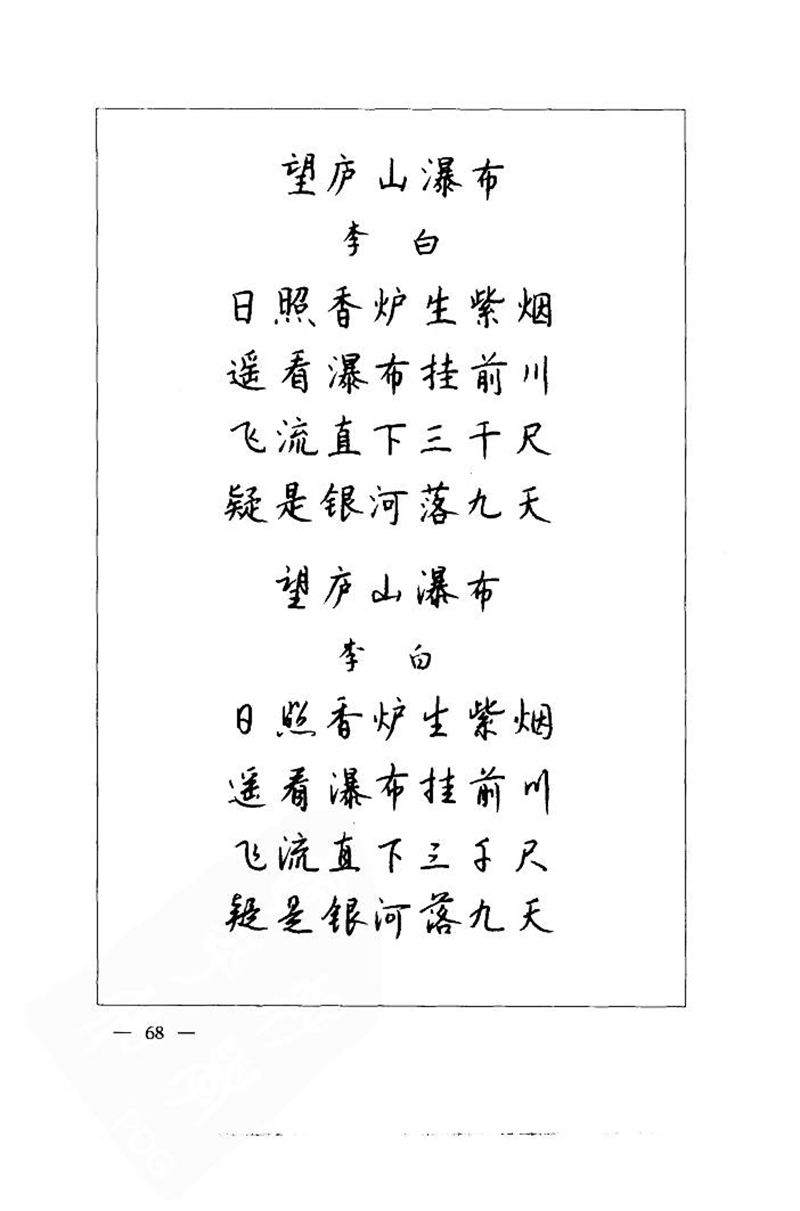 望庐山瀑布
李 白
日照香炉生紫烟
遥看瀑布挂前川
飞流直下三千尺
疑是银河落九天
望庐山瀑布
李 白
日照香炉生紫烟
遥看瀑布挂前川
飞流直下三千尺
疑是银河落九天
— 68 —